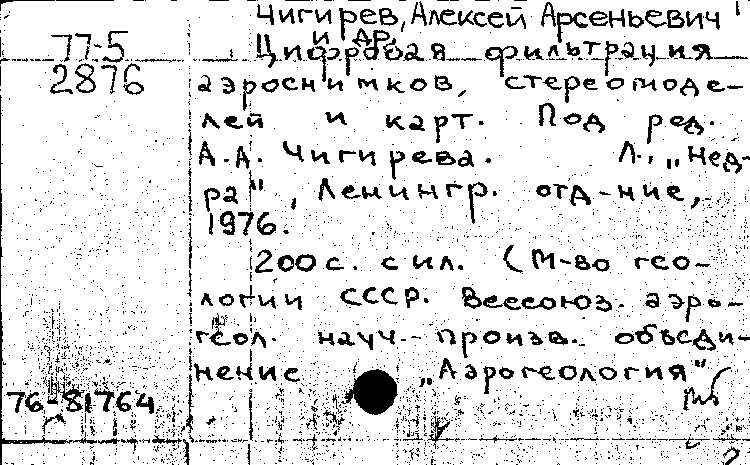 Чигирев, Алексей Арсеньевич
и др.
77-5
Цифровая фильтрация
2876
аэроснимков, стереомоде-
лей и карт. Под ред.
А.А. Чигирева. Л., „Нед-
ра", Ленингр. отд-ние,
1976.
200 с. с ил. (М-во гео-
логии СССР. Всесоюз. аэро-
геол. науч.-произв. объеди-
нение „Аэрогеология"
76-81764